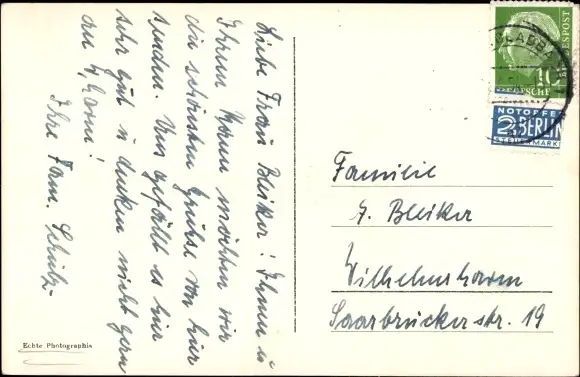 Liebe Frau Bleiker! Ihnen u
Ihrem Mann möchten wir
die schönsten Grüße von hier
senden. Uns gefällt es hier
sehr gut u denken nicht gern
an W'haven!
Ihre Fam. Schulz
Echte Photographie
GLADBA
10
BUNDESPOST
DEUTSCHE
NOTOPFER
2 BERLIN
STEUERMARKE
Familie
G. Bleiker
Wilhelmshaven
Saarbrückerstr. 19